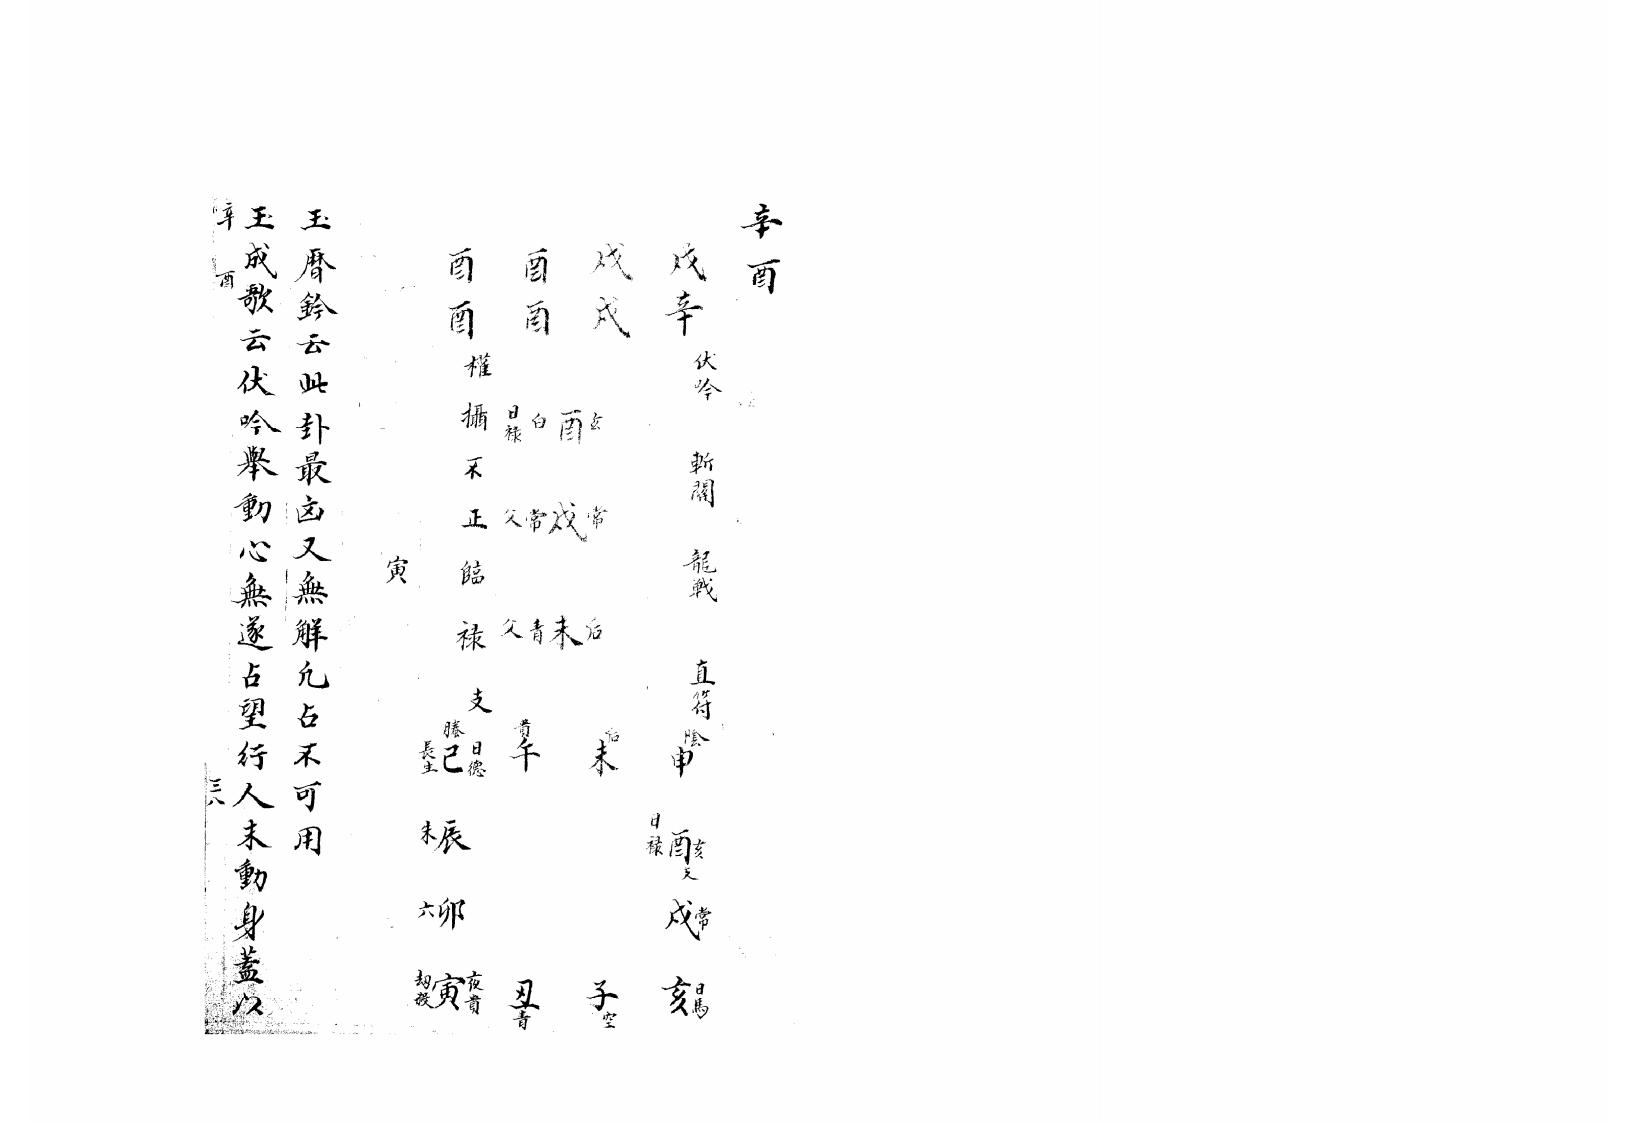 辛酉
戌辛 伏吟 斬關 龍戰 直符
戌戌
酉酉
酉酉
玄酉白日禄
常戌常父
后未青父
權攝不正臨禄支
陰申
后未
貴午
日德巳螣長生
辰朱
卯六
夜貴寅劫殺
丑青
子空
亥日馬
戌常
酉玄日禄
寅
玉曆鈐云此卦最凶又無解凡占不可用
玉成歌云伏吟舉動心無遂占望行人未動身蓋以
辛酉
三八